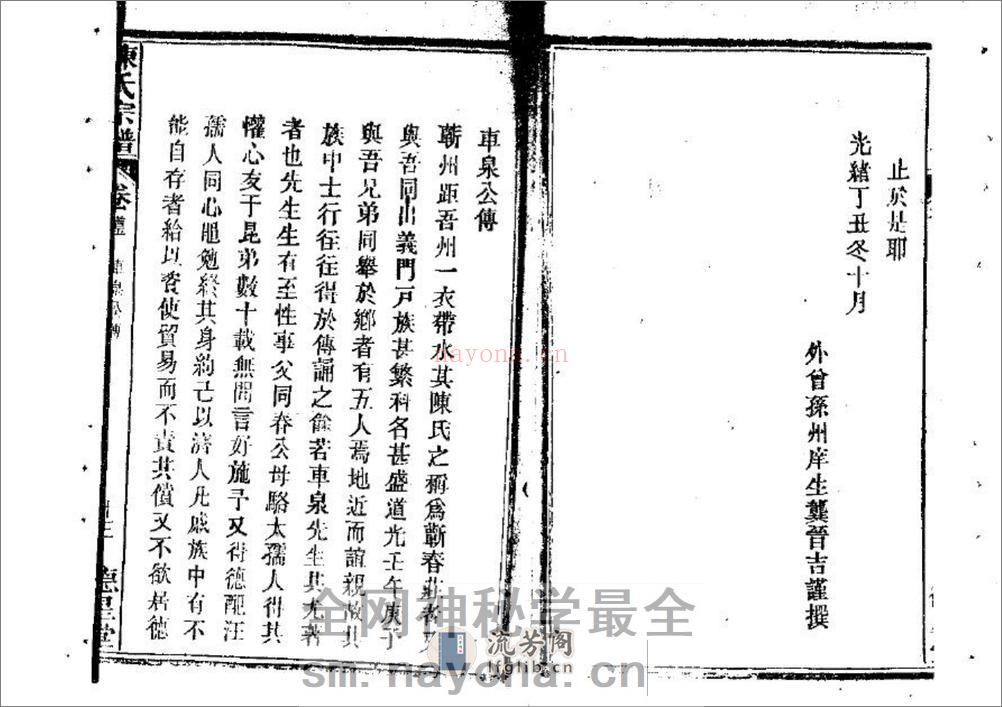 止於是耶
光緒丁丑冬十月
外曾孫州庠生龔晉吉謹撰
車泉公傳
蘄州距吾州一衣帶水其陳氏之稱為蘄春莊者
與吾同出義門戸族甚繁科名甚盛道光壬午庚子
與吾兄弟同舉於鄉者有五人焉地近而誼親故其
族中士行往往得於傳誦之餘若車泉先生其尤著
者也先生生有至性事父同春公母駱太孺人得其
懽心友于昆弟數十載無間言好施予又得德配汪
孺人同心黽勉終其身約己以濟人凡戚族中有不
能自存者給以資使貿易而不責其償又不欲居德
陳氏宗譜
卷
車泉公傳
德星堂
nayona.cn
全网神秘学最全
流芳阁
lfglib.cn
sm.nayona.cn